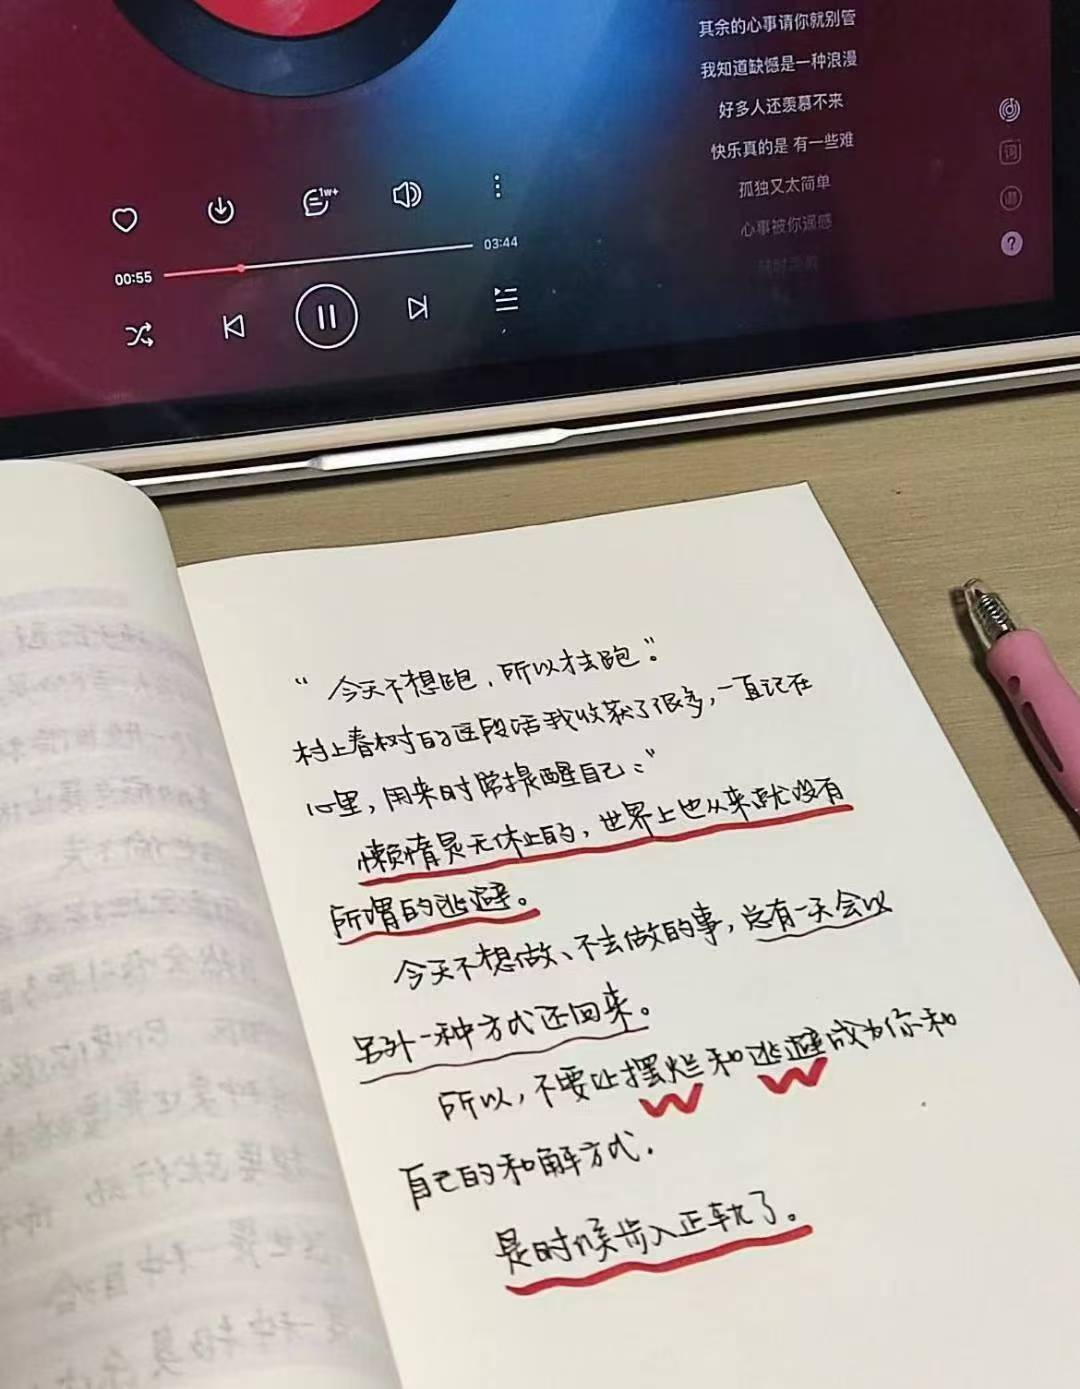 其余的心事请你就别管
我知道缺憾是一种浪漫
好多人还羡慕不来
快乐真的是 有一些难
孤独又太简单
心事被你遥感
1w+
词
00:55
03:44
?
“今天不想跑,所以才去跑”。
村上春树的这段话我收获了很多,一直记在
心里,用来时常提醒自己:”
懒惰是无休止的,世界上也从来就没有
所谓的逃避。
今天不想做、不去做的事,总有一天会以
另外一种方式还回来。
所以,不要让摆烂和逃避成为你和
自己的和解方式.
是时候步入正轨了。